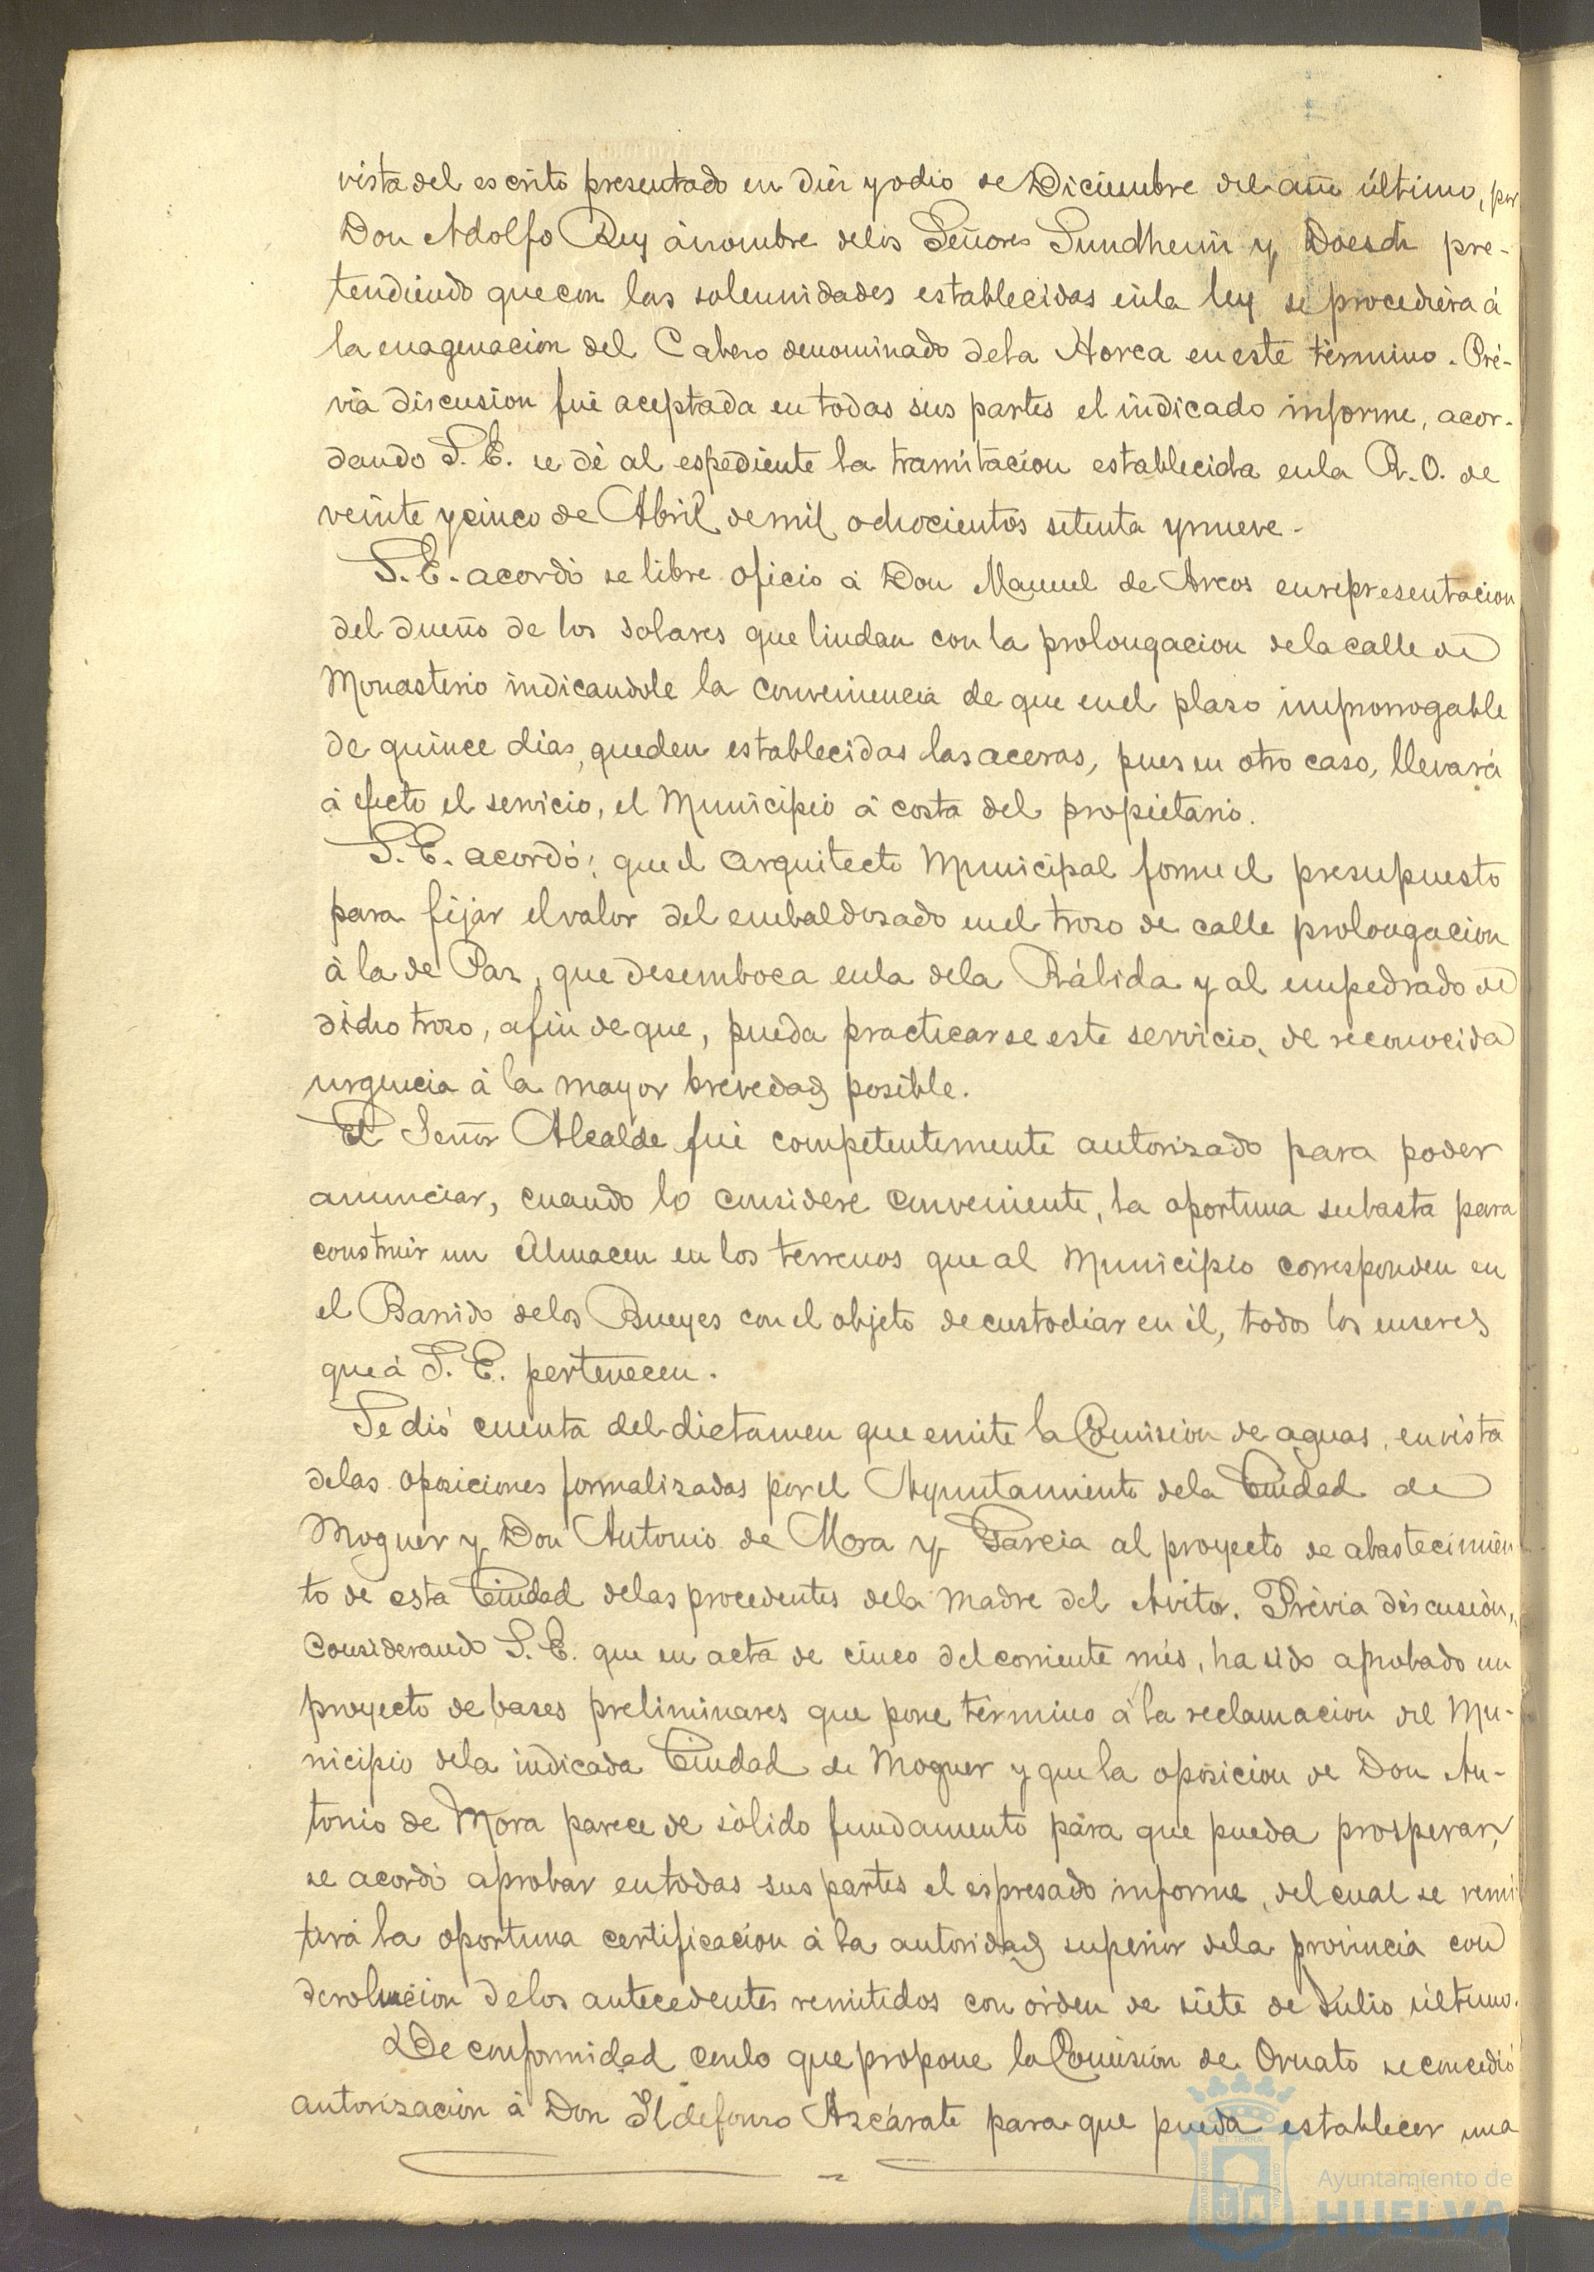 vista del escrito presentado en diez y ocho de Diciembre del año último, por
Don Adolfo Rey á nombre de los Señores Sundheim y Doesch pre-
tendiendo que con las solemnidades establecidas en la ley se procediera á
la enagenacion del Cabezo denominado de la Horca en este término. Pré-
via discusion fué aceptada en todas sus partes el indicado informe, acor-
dando S. E. se dé al espediente la tramitacion establecida en la R. O. de
veinte y cinco de Abril de mil ochocientos setenta y nueve.
S. E. acordó se libre oficio á Don Manuel de Arcos en representacion
del dueño de los solares que lindan con la prolongacion de la calle de
Monasterio indicandole la conveniencia de que en el plazo improrrogable
de quince dias, queden establecidas las aceras, pues en otro caso, llevará
á efecto el servicio, el Municipio á costa del propietario.
S. E. acordó: que el Arquitecto Municipal forme el presupuesto
para fijar el valor del embaldosado en el trozo de calle prolongacion
á la de Paz, que desemboca en la de la Rábida y al empedrado de
dicho trozo, afin de que, pueda practicarse este servicio, de reconocida
urgencia á la mayor brevedad posible.
El Señor Alcalde fué competentemente autorizado para poder
anunciar, cuando lo considere conveniente, la oportuna subasta para
construir un Almacen en los terrenos que al Municipio corresponden en
el Barrido de los Bueyes con el objeto de custodiar en él, todos los enseres
que á S. E. pertenecen.
Se dió cuenta del dictamen que emite la Comision de aguas, en vista
de las oposiciones formalizadas por el Ayuntamiento de la Ciudad de
Moguer y Don Antonio de Mora y Garcia al proyecto de abastecimien-
to de esta Ciudad de las procedentes de la Madre del Avitor. Prévia discusión,
Considerando S. E. que en acta de cinco del corriente més, ha sido aprobado un
proyecto de bases preliminares que pone término á la reclamacion del Mu-
nicipio de la indicada Ciudad de Moguer y que la oposicion de Don An-
tonio de Mora parece de sólido fundamento para que pueda prosperar,
se acordó aprobar en todas sus partes el espresado informe, del cual se remi
tirá la oportuna certificacion á la autoridad superior de la provincia con
devolucion de los antecedentes remitidos con órden de siete de Julio último.
De conformidad con lo que propone la Comisión de Ornato se concedió
autorización á Don Ildefonso Azcárate para que pueda establecer una
Ayuntamiento de
HUELVA